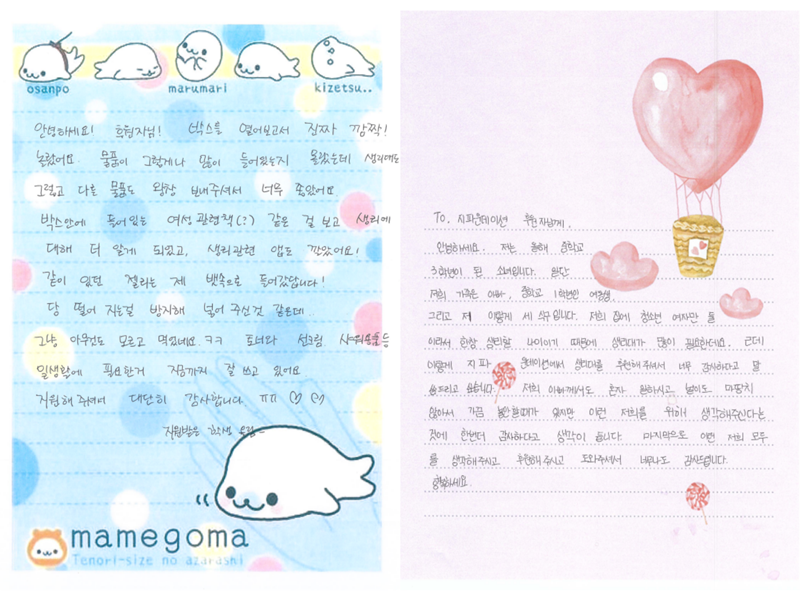 osanpo
marumari
kizetsu..
안녕하세요! 후원자님! 박스를 열어보고서 진짜 깜짝!
놀랐어요. 물품이 그렇게나 많이 들어있는지 몰랐는데 생리대도
그렇고 다른 물품도 왕창 보내주셔서 너무 좋았어요
박스안에 들어있는 여성관련책(?) 같은 걸 보고 생리에
대해 더 알게 되었고, 생리관련 앱도 깔았어요!
같이 있던 젤리는 제 뱃속으로 들어갔답니다!
당 떨어지는걸 방지해 넣어 주신것 같은데..
그냥 아무것도 모르고 먹었네요.ㅋㅋ 토너랑 선크림 샤워용품등
일생활에 필요한거 지금까지 잘 쓰고 있어요
지원해 주셔서 대단히 감사합니다 ㅠㅠ ♡ ♡
지원받은 학생 올림-
mamegoma
Tenori-size no azarashi
To. 지파운데이션 후원자님께,
안녕하세요. 저는 중학교
3학년이 된 소녀입니다. 일단
저희 가족은 아빠, 중학교 1학년인 여동생,
그리고 저 이렇게 세 식구입니다. 저희 집에 청소년 여자만 둘
이라서 한창 생리할 나이이기 때문에 생리대가 많이 필요한데요. 근데
이렇게 지파운데이션에서 생리대를 후원해주셔서 너무 감사하다고 말
씀드리고 싶습니다. 저희 아빠께서도 혼자 일하시고 벌이도 마땅치
않아서 가끔 불안할때가 있지만 이런 저희를 위해 생각해주신다는
것에 한번더 감사하다고 생각이 듭니다. 마지막으로 이런 저희 모두
를 생각해주시고 후원해주시고 도와주셔서 너무나도 감사드립니다.
행복하세요.